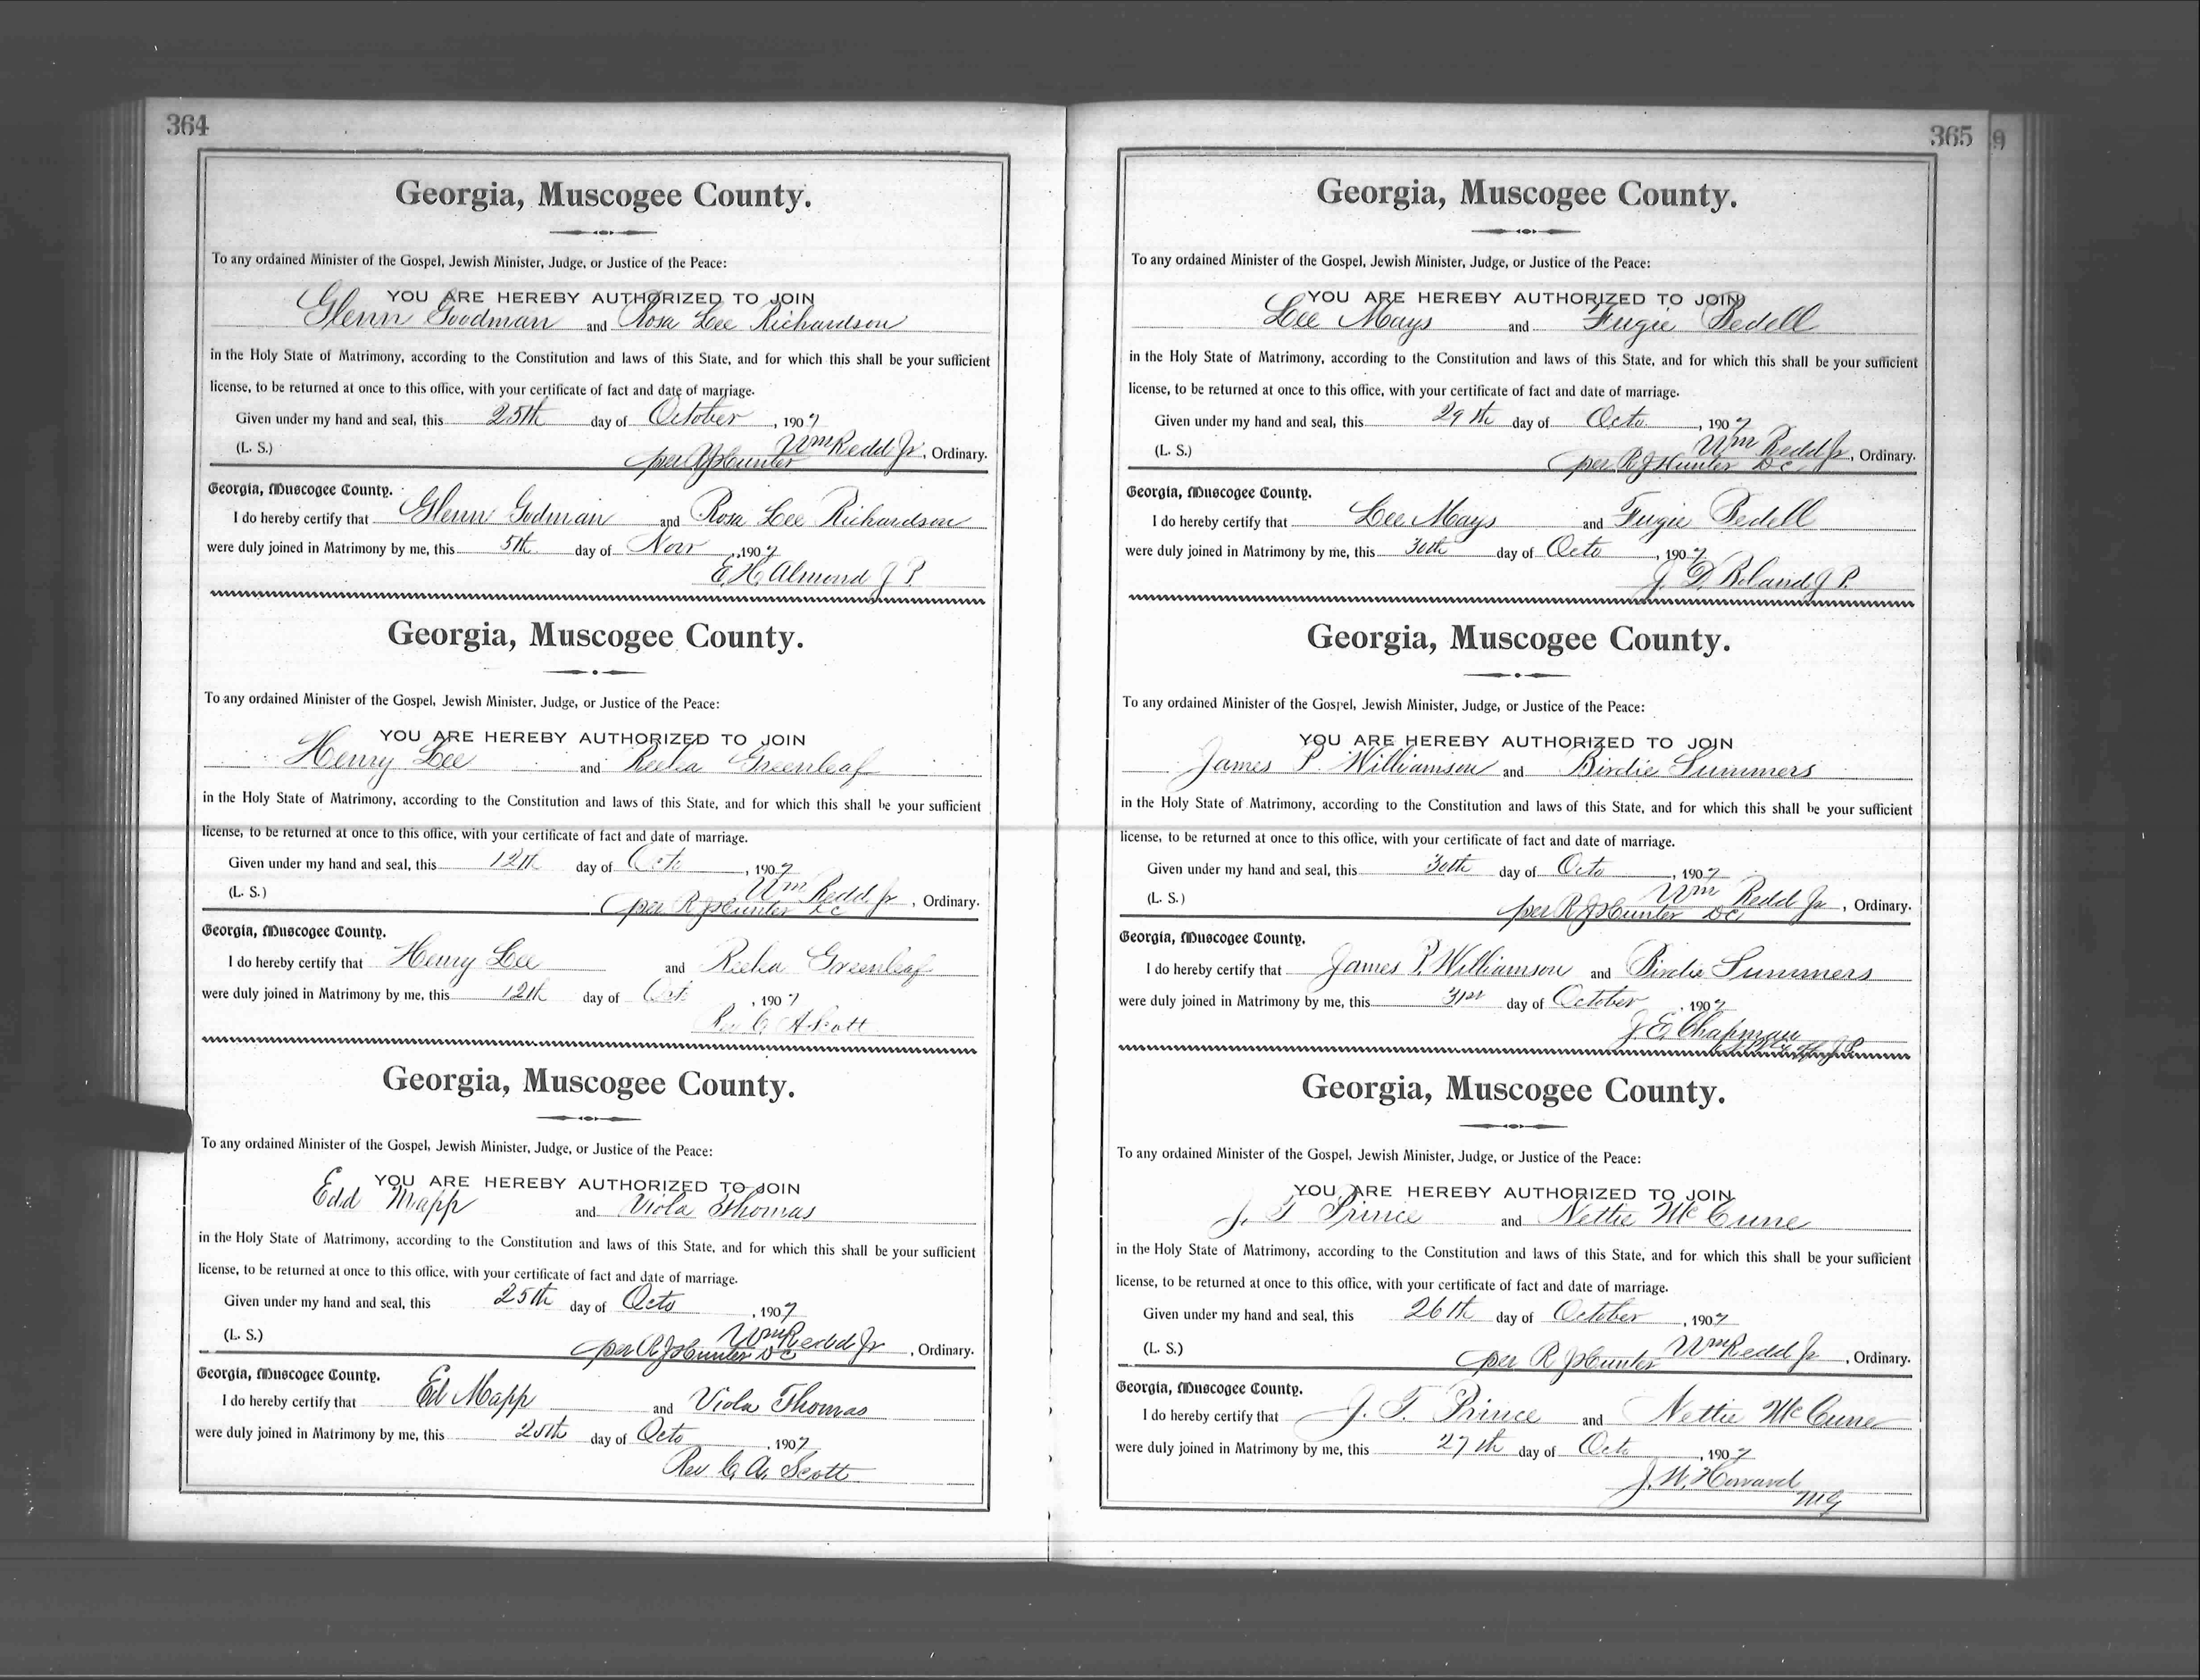 364
Georgia, Muscogee County.
To any ordained Minister of the Gospel, Jewish Minister, Judge, or Justice of the Peace:
YOU ARE HEREBY AUTHORIZED TO JOIN
Glenn Goodman and Rosa Lee Richardson
in the Holy State of Matrimony, according to the Constitution and laws of this State, and for which this shall be your sufficient
license, to be returned at once to this office, with your certificate of fact and date of marriage.
Given under my hand and seal, this 25th day of October, 1907
(L. S.) Wm Redd Jr, Ordinary.
per R J Hunter
Georgia, Muscogee County.
I do hereby certify that Glenn Godman and Rosa Lee Richardson
were duly joined in Matrimony by me, this 5th day of Nov, 1907
E. H. Almond J P.
Georgia, Muscogee County.
To any ordained Minister of the Gospel, Jewish Minister, Judge, or Justice of the Peace:
YOU ARE HEREBY AUTHORIZED TO JOIN
Henry Lee and Greenleaf
in the Holy State of Matrimony, according to the Constitution and laws of this State, and for which this shall be your sufficient
license, to be returned at once to this office, with your certificate of fact and date of marriage.
Given under my hand and seal, this 12th day of Octo, 1907
(L. S.) Wm Redd Jr, Ordinary.
per R J Hunter DC
Georgia, Muscogee County.
I do hereby certify that Henry Lee and Greenleaf
were duly joined in Matrimony by me, this 12th day of Oct, 1907
Rev C. A Scott
Georgia, Muscogee County.
To any ordained Minister of the Gospel, Jewish Minister, Judge, or Justice of the Peace:
YOU ARE HEREBY AUTHORIZED TO JOIN
Edd Mapp and Viola Thomas
in the Holy State of Matrimony, according to the Constitution and laws of this State, and for which this shall be your sufficient
license, to be returned at once to this office, with your certificate of fact and date of marriage.
Given under my hand and seal, this 25th day of Octo, 1907
(L. S.) Wm Redd Jr, Ordinary.
per R J Hunter DC
Georgia, Muscogee County.
I do hereby certify that Ed Mapp and Viola Thomas
were duly joined in Matrimony by me, this 25th day of Octo, 1907
Rev C. A. Scott
365
9
Georgia, Muscogee County.
To any ordained Minister of the Gospel, Jewish Minister, Judge, or Justice of the Peace:
YOU ARE HEREBY AUTHORIZED TO JOIN
Lee Mays and Fugie Bedell
in the Holy State of Matrimony, according to the Constitution and laws of this State, and for which this shall be your sufficient
license, to be returned at once to this office, with your certificate of fact and date of marriage.
Given under my hand and seal, this 29th day of Octo, 1907
(L. S.) Wm Redd Jr, Ordinary.
per R J Hunter DC
Georgia, Muscogee County.
I do hereby certify that Lee Mays and Fugie Bedell
were duly joined in Matrimony by me, this 30th day of Octo, 1907
J. D. Boland J P.
Georgia, Muscogee County.
To any ordained Minister of the Gospel, Jewish Minister, Judge, or Justice of the Peace:
YOU ARE HEREBY AUTHORIZED TO JOIN
James P. Williamson and Birdie Summers
in the Holy State of Matrimony, according to the Constitution and laws of this State, and for which this shall be your sufficient
license, to be returned at once to this office, with your certificate of fact and date of marriage.
Given under my hand and seal, this 30th day of Octo, 1907
(L. S.) Wm Redd Jr, Ordinary.
per R J Hunter DC
Georgia, Muscogee County.
I do hereby certify that James P. Williamson and Birdie Summers
were duly joined in Matrimony by me, this 31st day of October, 1907
J. E. Chapman
J P.
Georgia, Muscogee County.
To any ordained Minister of the Gospel, Jewish Minister, Judge, or Justice of the Peace:
YOU ARE HEREBY AUTHORIZED TO JOIN
J. T Prince and Nettie McCune
in the Holy State of Matrimony, according to the Constitution and laws of this State, and for which this shall be your sufficient
license, to be returned at once to this office, with your certificate of fact and date of marriage.
Given under my hand and seal, this 26th day of October, 1907
(L. S.) Wm Redd Jr, Ordinary.
per R J Hunter
Georgia, Muscogee County.
I do hereby certify that J. T. Prince and Nettie McCune
were duly joined in Matrimony by me, this 27th day of Octo, 1907
J. W. Howard
MG